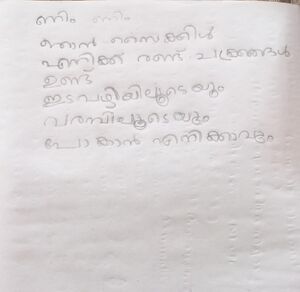 ണിം ണിം
ഞാൻ സൈക്കിൾ
എനിക്ക് രണ്ട് ചക്രങ്ങൾ
ഉണ്ട്
ഇടവഴിയിലൂടെയും
വരമ്പിലൂടെയും
പോകാൻ എനിക്കാവും